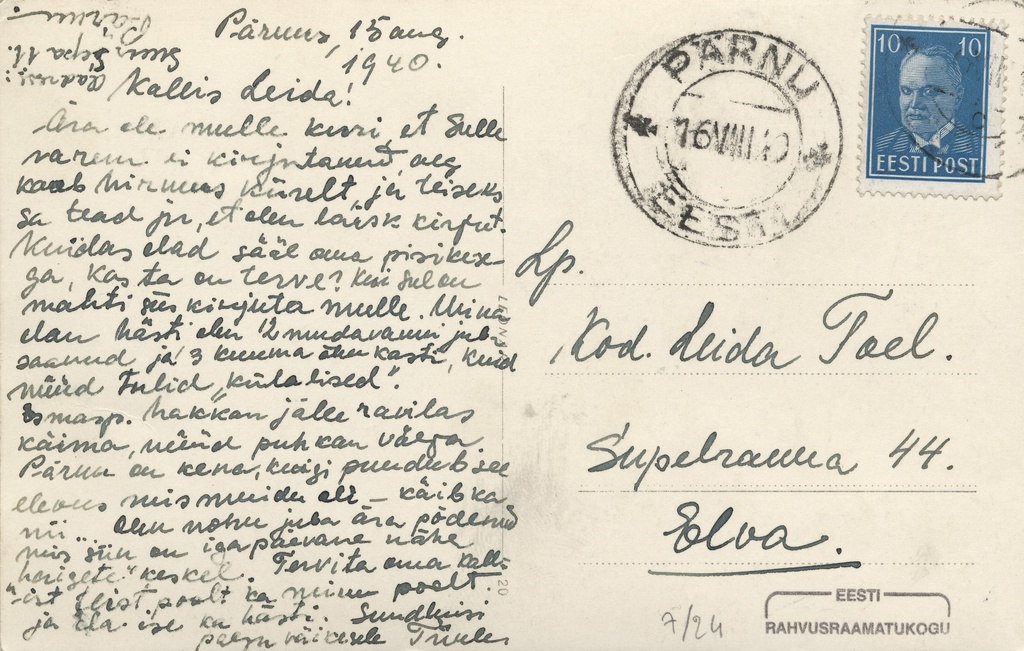 Pärnu
Suur Sepa 11.
Aadress:
Pärnus, 15 aug.
1940.
Kallis Leida!
Ära ole mulle kuri, et Sulle
varem ei kirjutanud, aeg
kaob hirmus kiirelt ja teiseks
sa tead ju, et olen laisk kirjut.
Kuidas elad sääl oma pisikese-
ga, kas ta on terve? Kui Sul on
mahti siis kirjuta mulle. Mina
elan hästi olen 12 mudavanni jub.
saanud ja 3 kuuma õhu kasti, kuid
nüüd tulid „külalised".
Esmasp. hakkan jälle ravilas
käima, nüüd puhkan välja
Pärnu on kena, kuigi puudub see
elevus mis muidu oli – käib ka
nii... Olen nohu juba ära põdenud
mis siin on igapäevane nähe
"haigete" keskel. Tervita oma kalli-
ist poolt ka minu poolt.
ja ela ise ka hästi. Suudlusi
palju väikesele
PÄRNU
16 VIII 40
EESTI
10 10
EESTI POST
Lp.
Kod. Leida Tael.
Supelranna 44.
Elva.
7/24
EESTI
RAHVUSRAAMATUKOGU